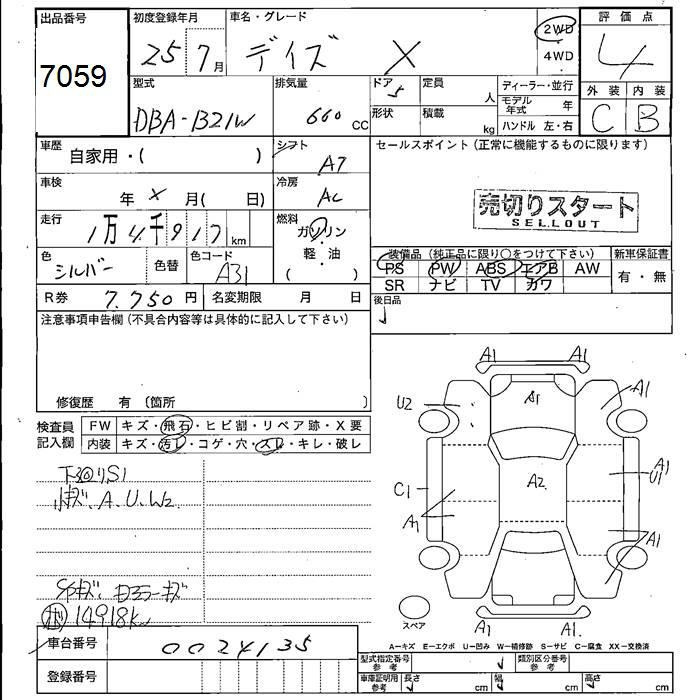 出品番号 初度登録年月 車名・グレード 評価点
7059 25 7月 デイズ X 2WD 4WD 4
型式 排気量 ドア 定員 ディーラー・並行 外装 内装
DBA-B21W 660 CC 5 人 モデル年式 年 C B
形状 積載 kg ハンドル 左・右
車歴 自家用・( ) シフト AT セールスポイント (正常に機能するものに限ります)
車検 年 X 月( 日) 冷房 AC
売切りスタート
SELLOUT
走行 1万4千917km 燃料 ガソリン
軽・油
( )
色 シルバー 色替 色コード A31
装備品 (純正品に限り○をつけて下さい) 新車保証書
PS PW ABS エアB AW 有・無
SR ナビ TV カワ
R券 7.750円 名変期限 月 日 後日品
注意事項申告欄 (不具合内容等は具体的に記入して下さい)
修復歴 有 〔箇所 〕
検査員記入欄 FW キズ・飛石・ヒビ割・リペア跡・X要
内装 キズ・汚レ・コゲ・穴・スレ・キレ・破レ
下回りS1
小キズ、A、U、W2
14918km
A1 A1
A1 A1
U2
A2 A1 U1
C1
A1 A1
スペア
A1 A1.
A=キズ E=エクボ U=凹み W=補修跡 S=サビ C=腐食 XX=交換済
車台番号 0024135
型式指定番号 参考 類別区分番号 参考
登録番号
車庫証明用 参考 長さ cm 幅 cm 高さ cm